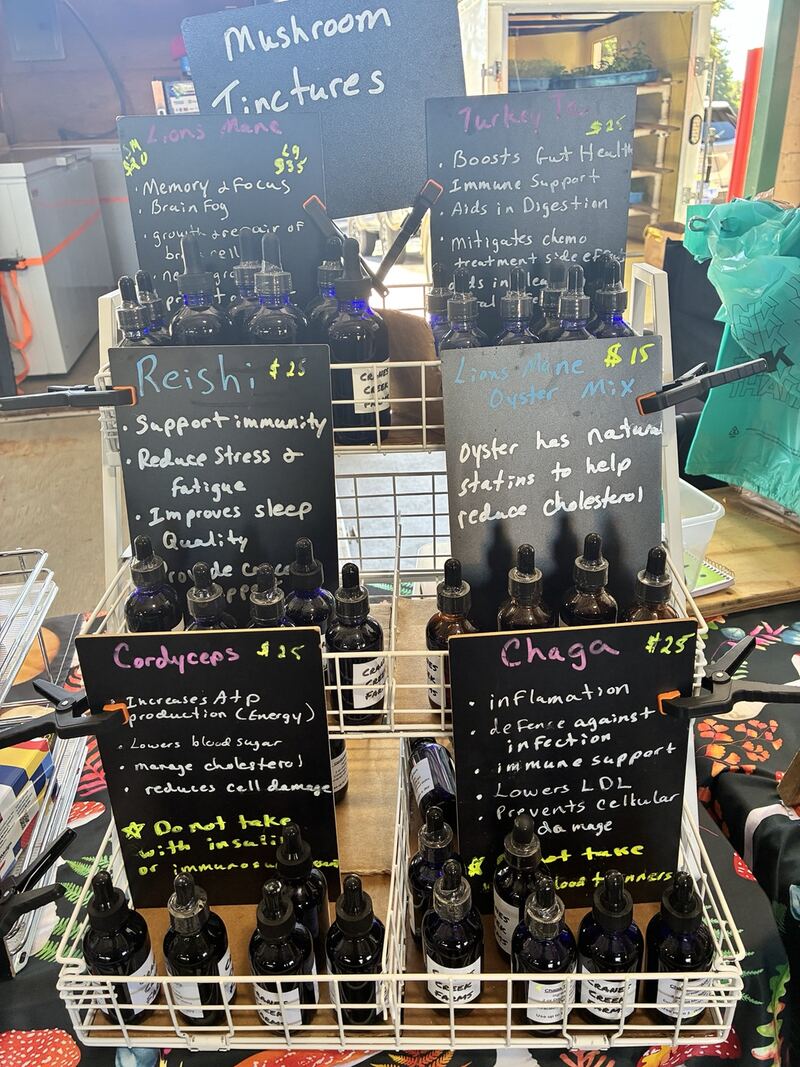 Mushroom
Tinctures
Lions Mane
SM
$20
LG
$35
• Memory & Focus
• Brain Fog
• growth & repair of
Turkey
$25
• Boosts Gut Health
• Immune Support
• Aids in Digestion
• Mitigates chemo
treatment side
Reishi $25
• Support immunity
• Reduce Stress &
Fatigue
• Improves sleep
Quality
Lions Mane $15
Oyster Mix
Oyster has natural
statins to help
reduce cholesterol
Cordyceps $25
• Increases Atp
production (Energy)
• Lowers blood sugar
• manage cholesterol
• reduces cell damage
☆ Do not take
with
or
Chaga $25
• inflamation
• defense against
infection
• immune support
• Lowers LDL
• Prevents cellular
damage
take
CRANES
CREEK
FARMS
CRANES
CREEK
FARMS
CREEK
FARMS
CRANE
CREEK
FARMS